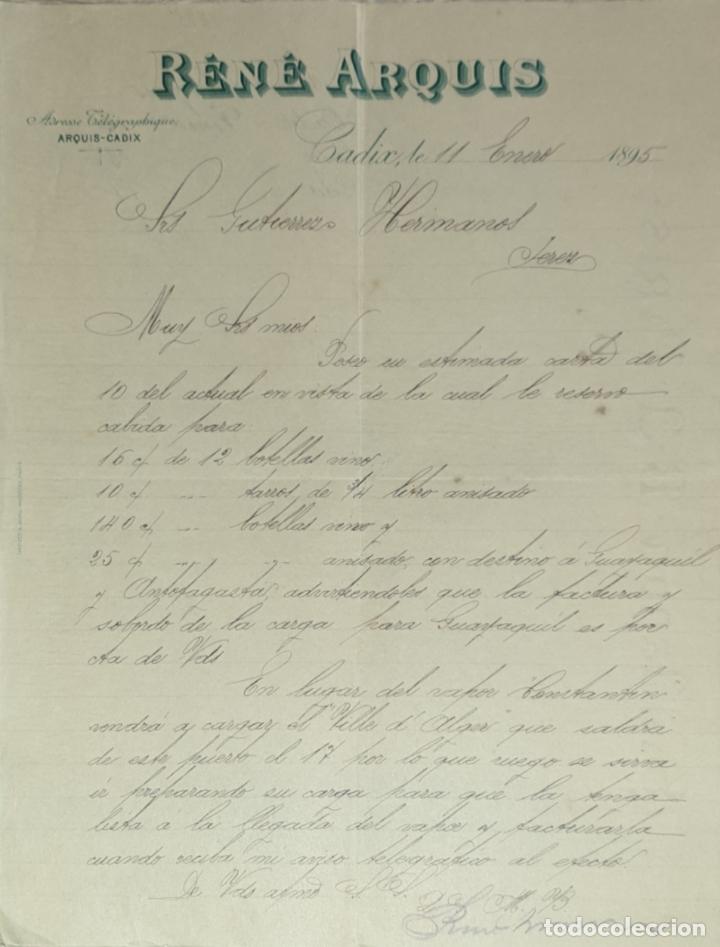 RÉNÉ ARQUIS
Adresse Télégraphique,
ARQUIS-CADIX
Cadix, le 11 Enero 1895
Srs Gutierrez Hermanos
Jerez
Muy Srs mios.
Poseo su estimada carta del
10 del actual en vista de la cual le reservo
cabida para
de 12 botellas vino
tarros de 3/4 litro anisado
botellas vino y
anisado, con destino á Guayaquil
y Antofagasta, advirtiendoles que la factura y
sobordo de la carga para Guayaquil es por
cta de Vds
En lugar del vapor Constantin
vendrá a cargar el "Ville d'Alger" que saldrá
de este puerto el 17 por lo que ruego se sirva
ir preparando su carga para que la tenga
lista a la llegada del vapor y facturarla
cuando reciba mi aviso telegráfico al efecto.
De Vds afmo S. S.
todocoleccion
todocoleccion.net